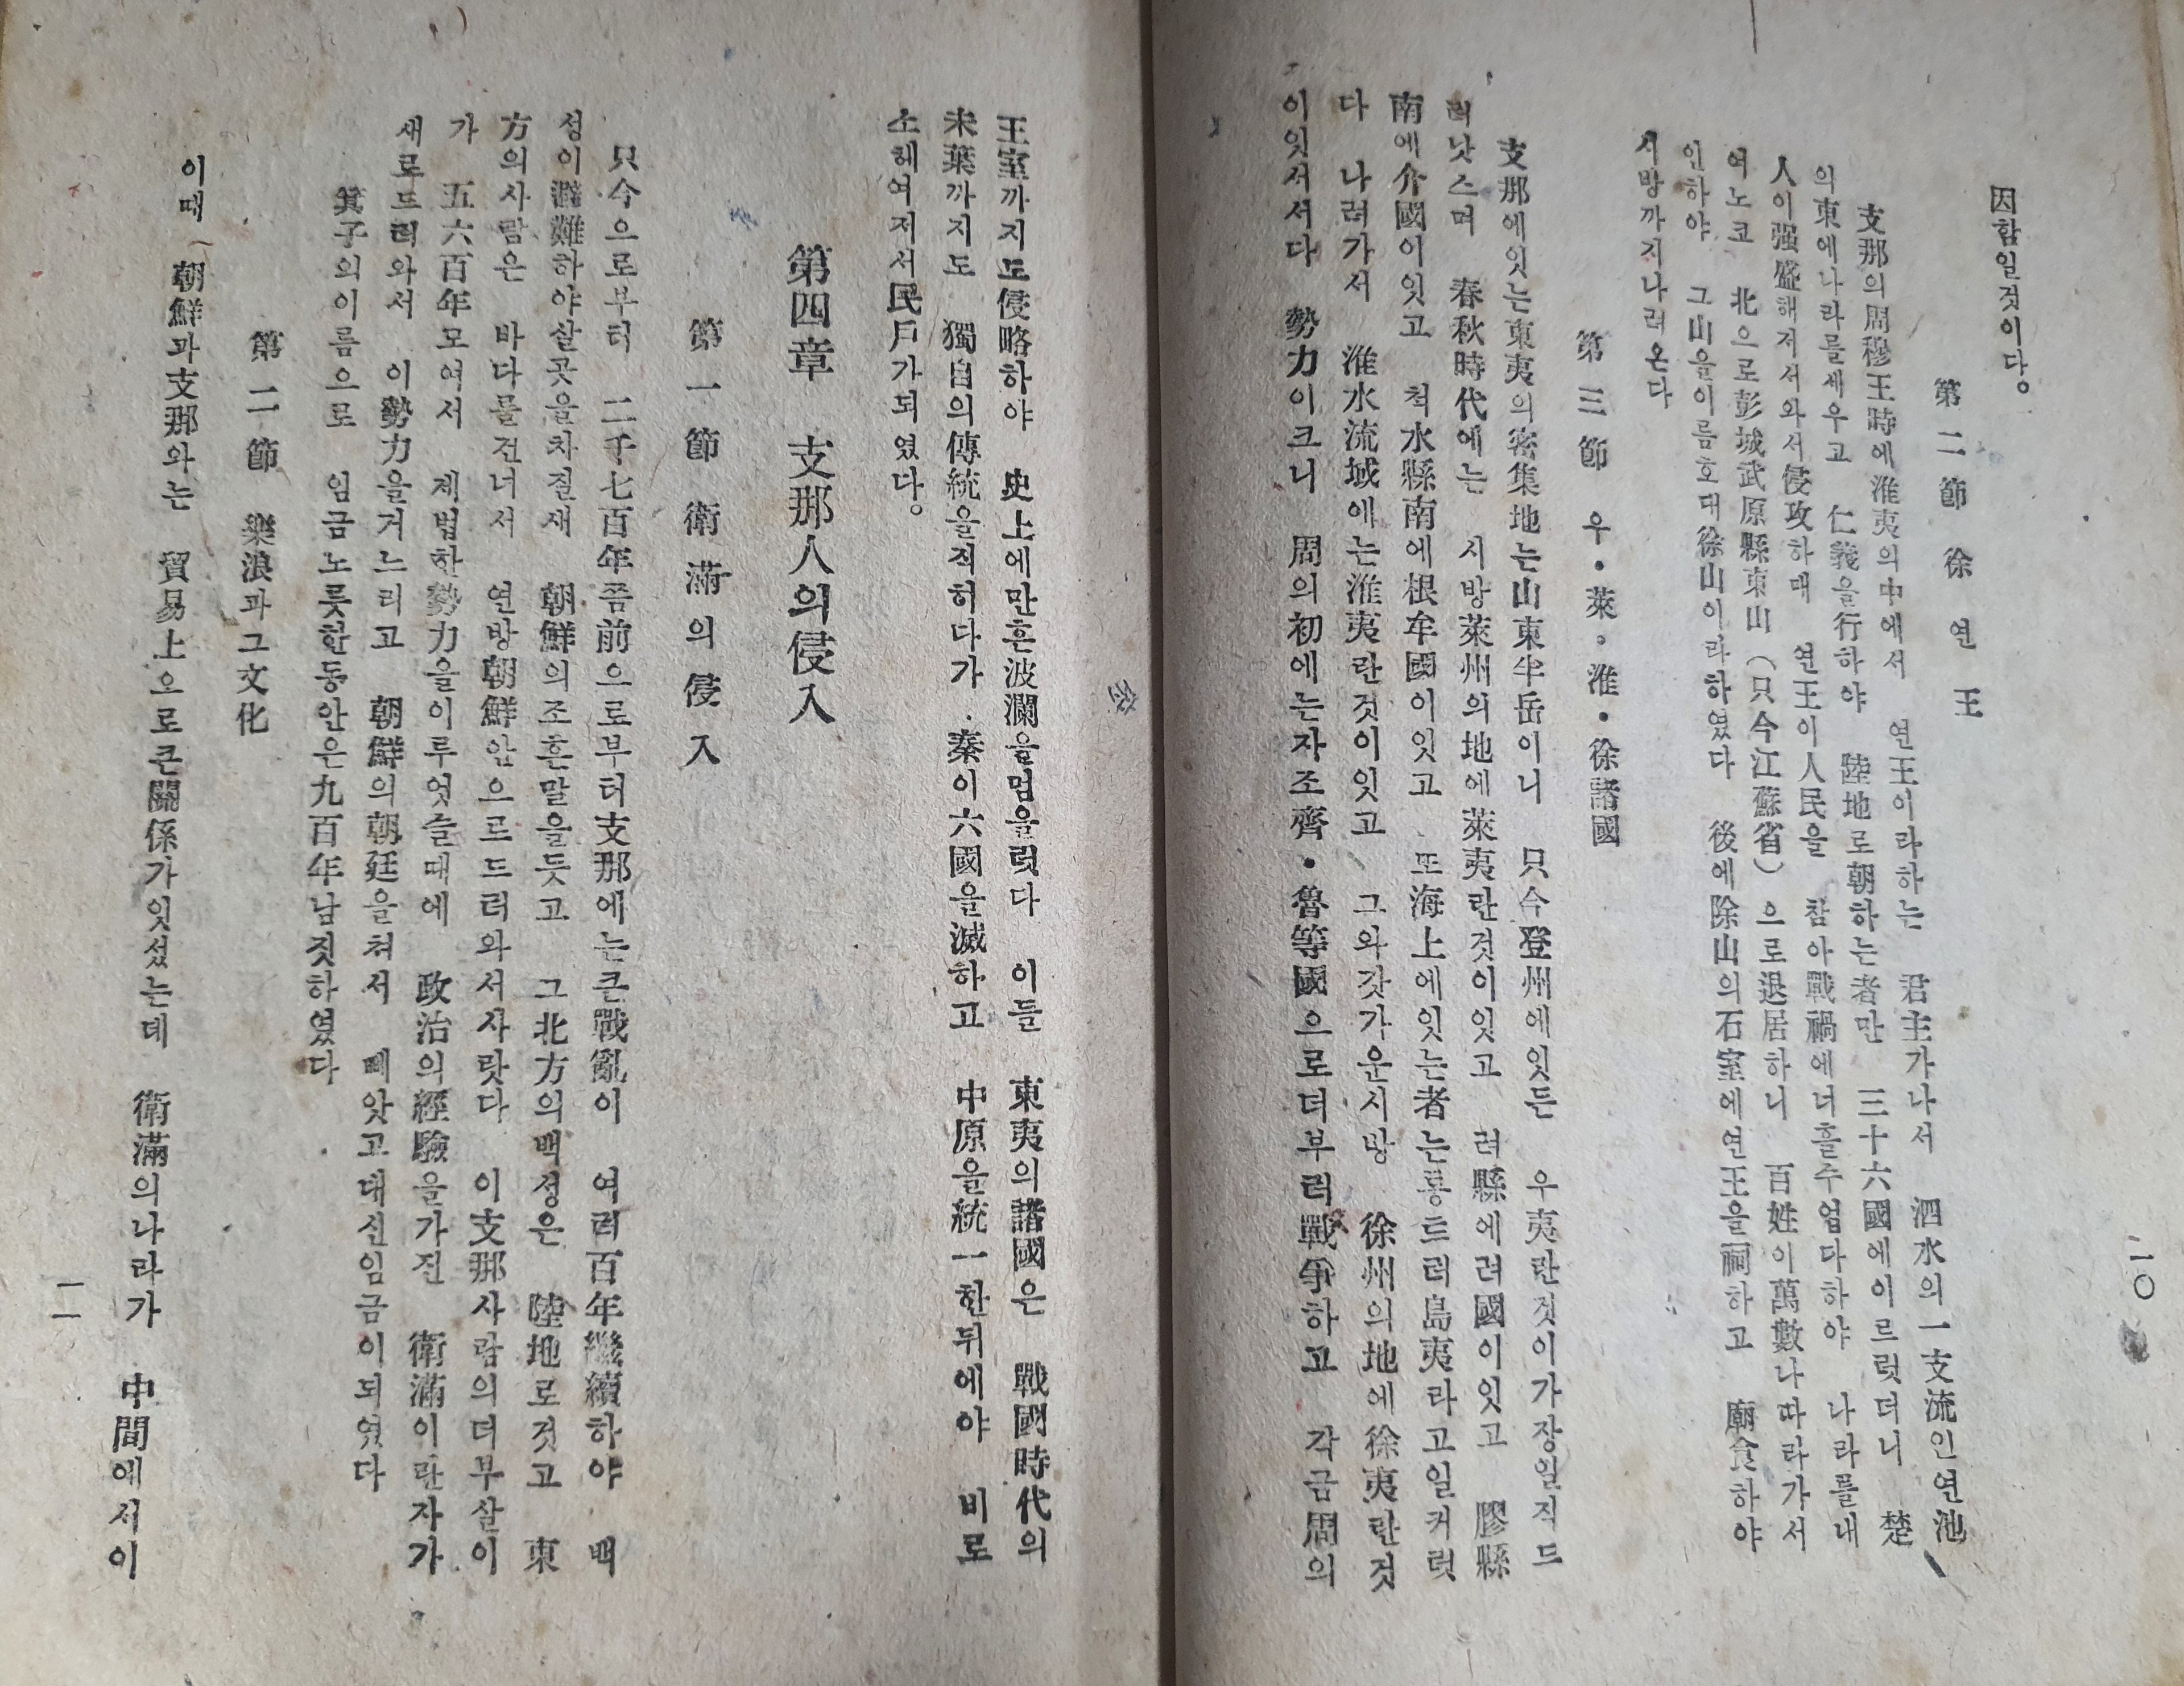 一〇
因함일것이다。
第二節 徐연王
支那의周穆王時에淮夷의中에서 연王이라하는 君主가나서 泗水의一支流인연池
의東에나라를세우고 仁義을行하야 陸地로朝하는者만 三十六國에이르럿더니 楚
人이强盛해저서와서侵攻하매 연王이人民을 참아戰禍에너흘수업다하야 나라를내
여노코 北으로彭城武原縣東山(只今江蘇省)으로退居하니 百姓이萬數나따라가서
인하야 그山을이름호대徐山이라하였다 後에除山의石室에연王을祠하고 廟食하야
시방까지나려온다
第三節 우・萊・淮・徐諸國
支那에잇는東夷의密集地는山東半岳이니 只今登州에잇든 우夷란것이가장일직드
러낫스며 春秋時代에는 시방萊州의地에萊夷란것이잇고 려縣에려國이잇고 膠縣
南에介國이잇고 척水縣南에根牟國이잇고 또海上에잇는者는통트러島夷라고일커럿
다 나려가서 淮水流域에는淮夷란것이잇고 그와갓가운시방 徐州의地에徐夷란것
이잇서서다 勢力이크니 周의初에는자조齊・魯等國으로더부러戰爭하고 각금周의
王室까지도侵略하야 史上에만흔波瀾을멈을럿다 이들 東夷의諸國은 戰國時代의
末葉까지도 獨自의傳統을직히다가 秦이六國을滅하고 中原을統一한뒤에야 비로
소헤여저서民戶가되였다。
第四章 支那人의侵入
第一節 衛滿의侵入
只今으로부터 二千七百年쯤前으로부터支那에는큰戰亂이 여러百年繼續하야 백
성이避難하야살곳을차질새 朝鮮의조흔말을듯고 그北方의백성은 陸地로것고 東
方의사람은 바다를건너서 연방朝鮮안으로드러와서사랏다 이支那사람의더부살이
가 五六百年모여서 제법한勢力을이루엇슬때에 政治의經驗을가진 衛滿이란자가
새로드러와서 이勢力을거느리고 朝鮮의朝廷을쳐서 빼앗고대신임금이되였다
箕子의이름으로 임금노릇한동안은九百年남짓하였다
第二節 樂浪과그文化
이때(朝鮮과支那와는 貿易上으로큰關係가잇섰는데 衛滿의나라가 中間에서이
一一